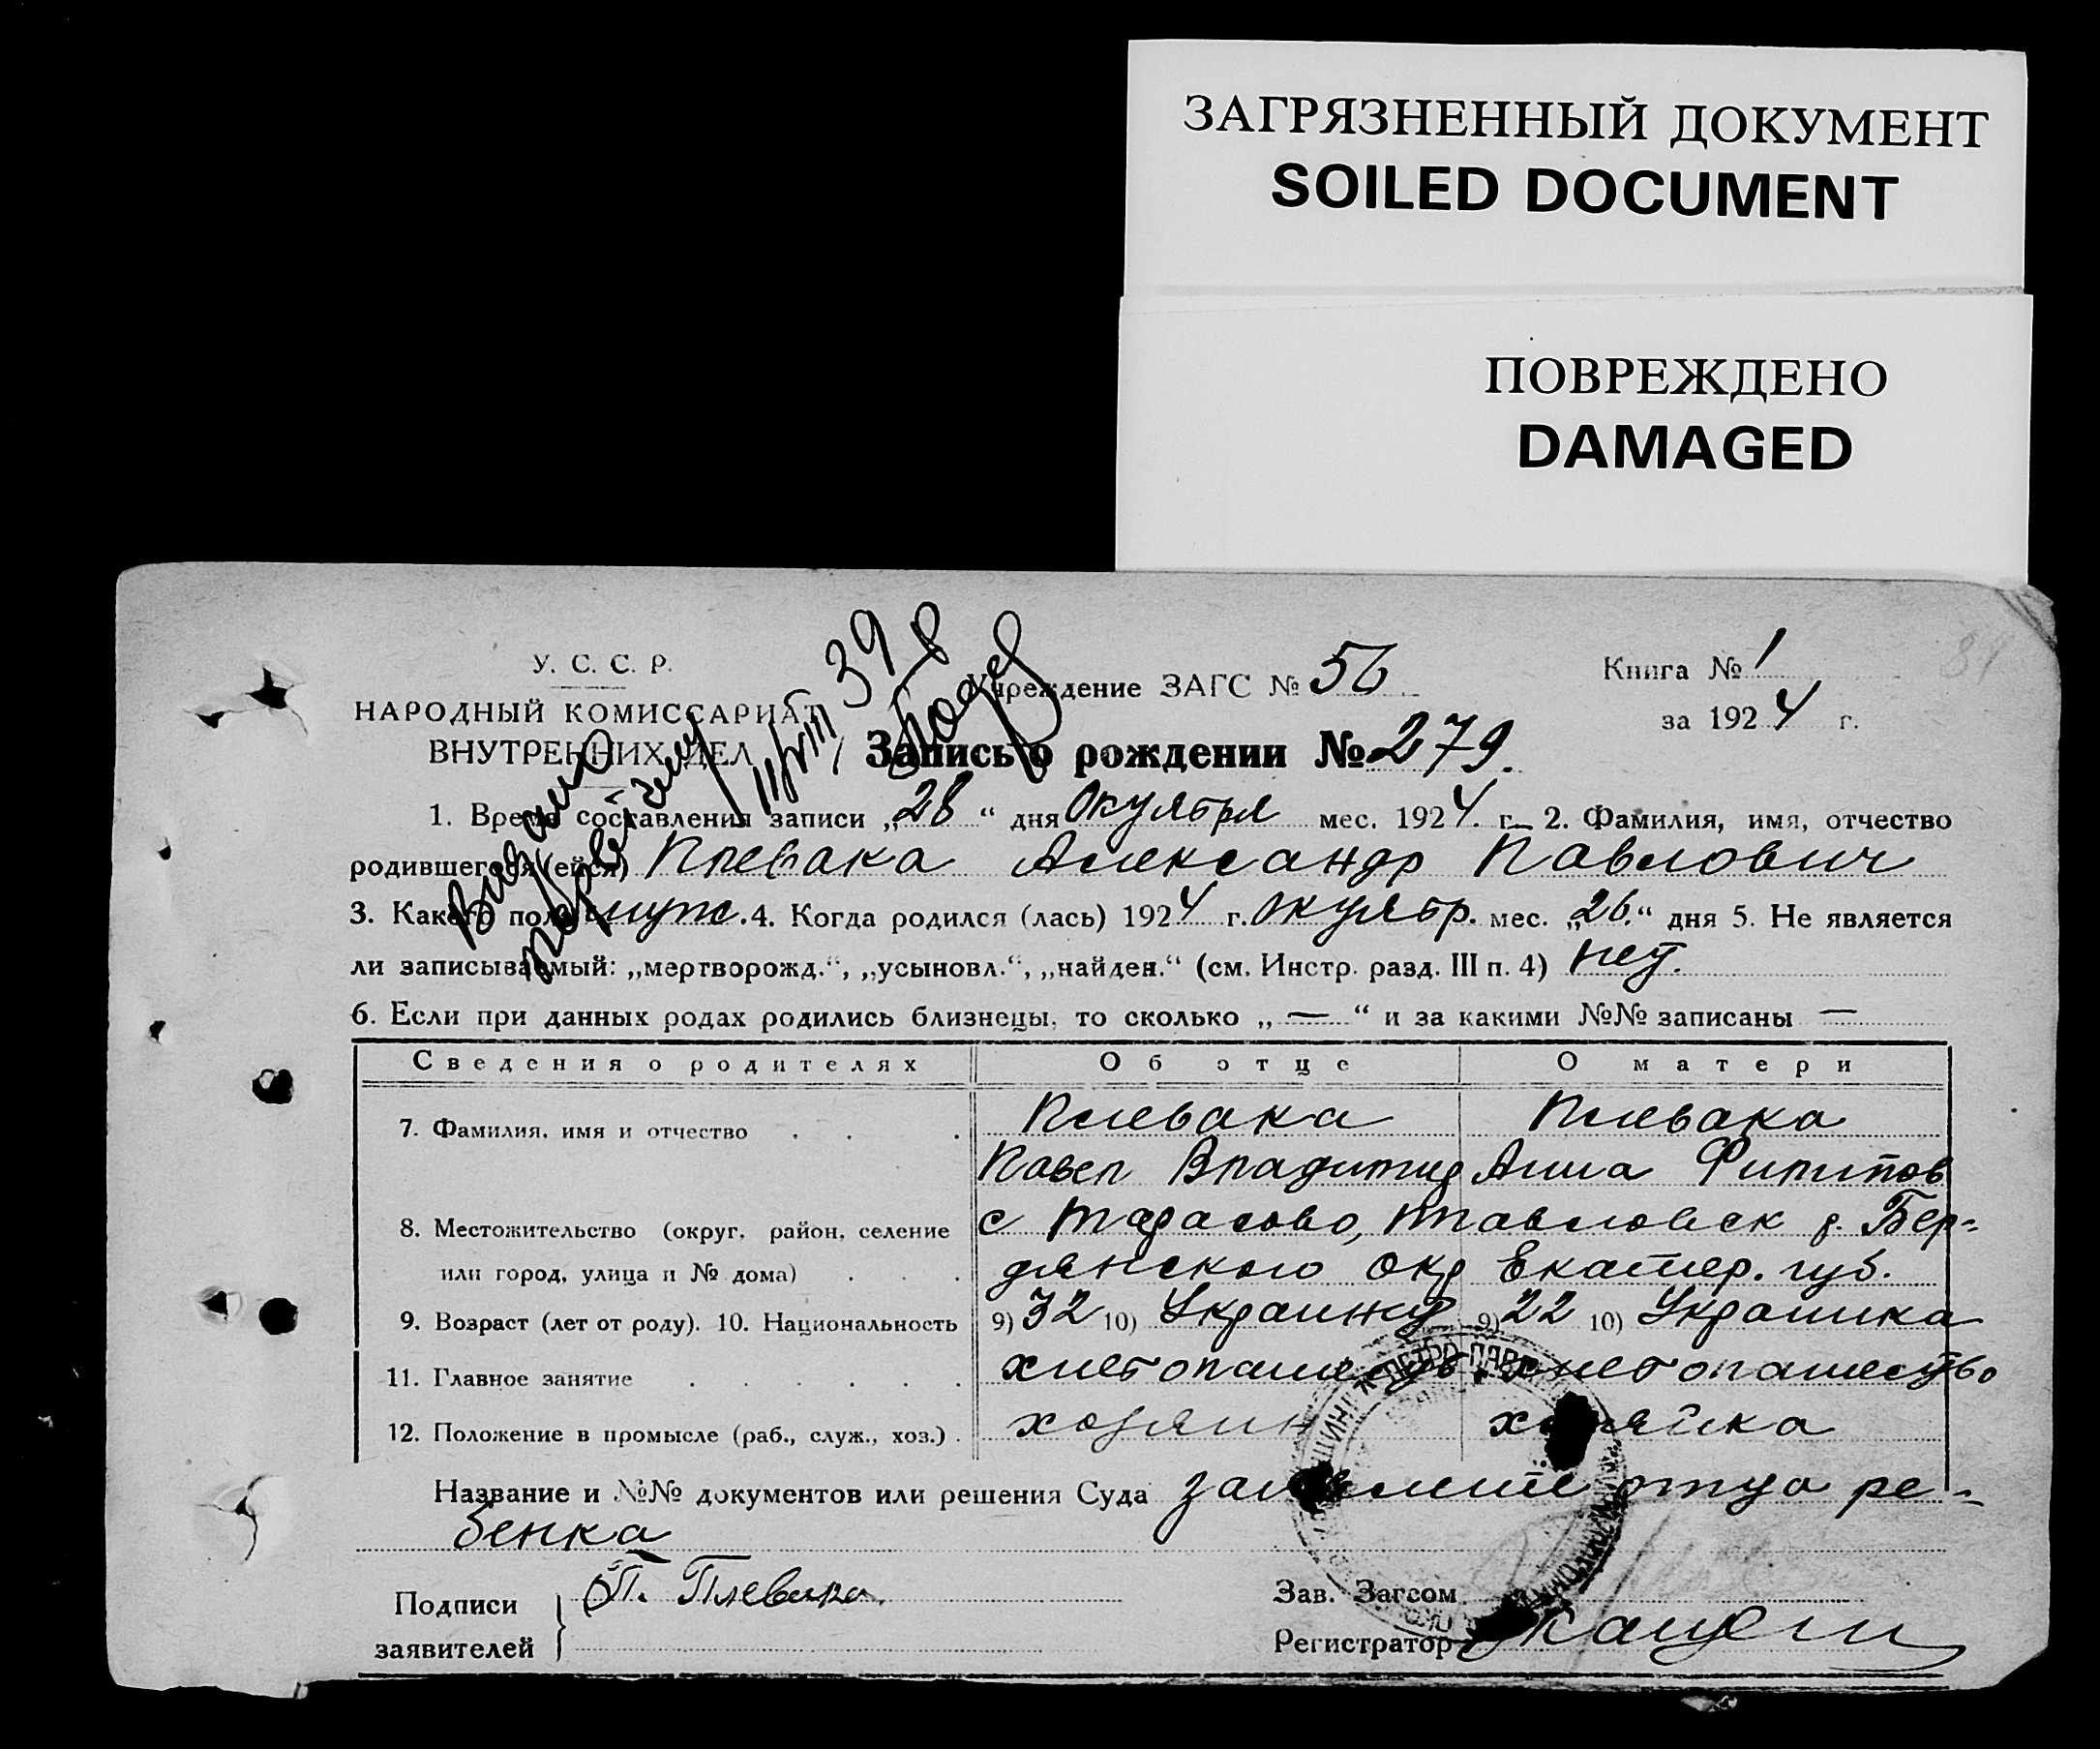 ЗАГРЯЗНЕННЫЙ ДОКУМЕНТ
SOILED DOCUMENT
ПОВРЕЖДЕНО
DAMAGED
У. С. С. Р.
НАРОДНЫЙ КОМИССАРИАТ
ВНУТРЕННИХ ДЕЛ
Учреждение ЗАГС № 56
Книга № 1
за 1924 г.
84
Запись о рождении № 279.
11/VIII 39
1. Время составления записи „28“ дня Октября мес. 1924. г. 2. Фамилия, имя, отчество
родившегося (ейся) Плевака Александр Павлович
3. Какого пола муж. 4. Когда родился (лась) 1924 г. Октябр. мес. „26.“ дня 5. Не является
ли записываемый: „мертворожд.“, „усыновл.“, „найден.“ (см. Инстр. разд. III п. 4) нет.
6. Если при данных родах родились близнецы, то сколько „ — “ и за какими №№ записаны —
Сведения о родителях Об отце О матери
7. Фамилия, имя и отчество Плевака Плевака
Павел Владимир Анна Филипов
8. Местожительство (округ, район, селение с Тарасово, Павловск р. Бер-
или город, улица и № дома) дянского окр Екатер. губ.
9. Возраст (лет от роду). 10. Национальность 9) 32 10) Украинец 9) 22 10) Украинка
11. Главное занятие хлебопашество хлебопашество
12. Положение в промысле (раб., служ., хоз.) хозяин хозяйка
Название и №№ документов или решения Суда заявление отца ре-
бенка
Подписи заявителей П. Плевака.
Зав. Загсом
Регистратор